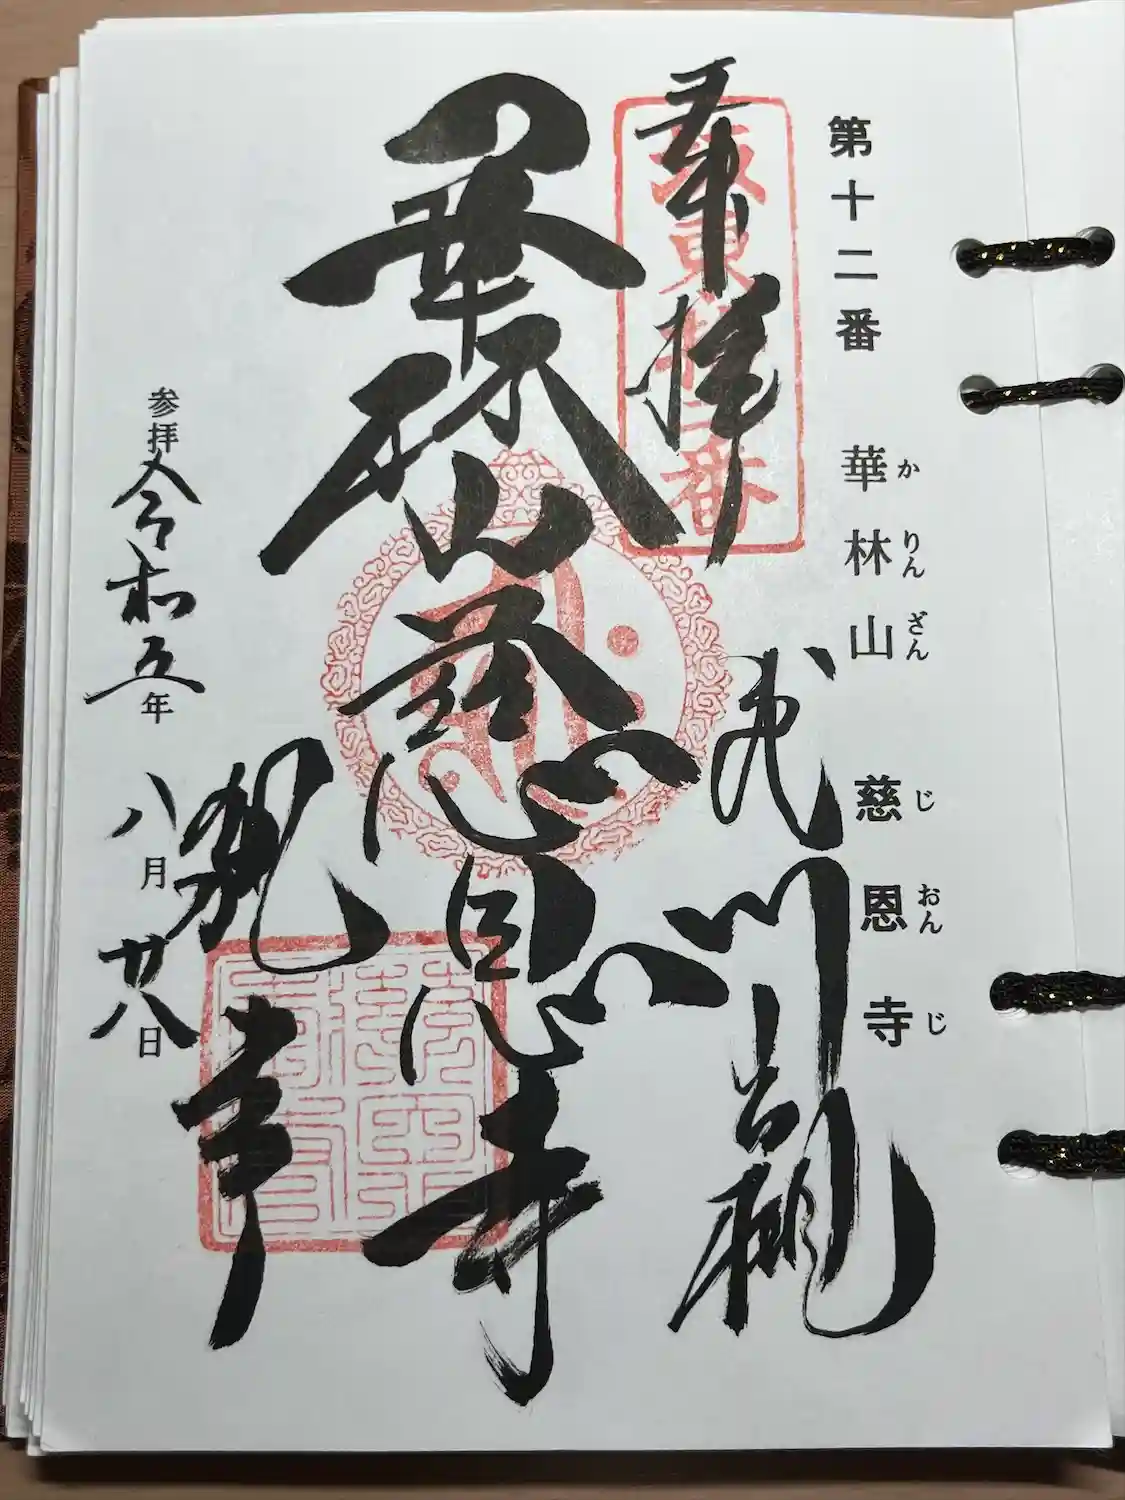 第十二番 華林山 慈恩寺
か りん ざん じ おん じ
奉拝
坂東拾二番
武州岩槻
華林山慈恩寺
参拝令和五年八月廿八日